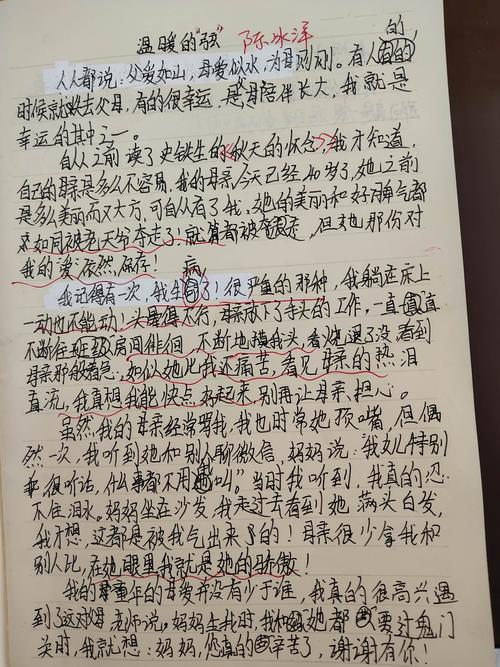 温暖的"弦" 陈冰洋
人人都说：父爱如山，母爱似水，为母则刚。有人有的的
时候就失去父母，有的很幸运，是父母陪伴长大，我就是
幸运的其中之一。
自从之前读了史铁生的《秋天的怀念》我才知道，
自己的母亲是多么不容易，我的母亲今天已经40岁了，她之前
是多么美丽而又大方，可自从有了我，她的美丽和好脾气都
如同被老天爷夺走了！就算都被夺走，但对她那份对
我的爱依然保存！
我记得有一次，我生病了！很严重的那种，我躺在床上
一动也不能动！头晕得不行，母亲放下了手头的工作，一直
不断在房间徘徊，不断地摸我头，看烧退了没看到
母亲那般着急，如似她比我还痛苦，看见母亲的热泪
直流，我真想我能快点好起来，别再让母亲担心。
虽然我的母亲经常骂我，我也时常她顶嘴，但偶
然一次，我听到她和别人聊微信，妈妈说："我女儿特别
很听话，什么事都不用叫"。当时我听到，我真的忍
不住泪水。妈妈坐在沙发，我走过去看到她满头白发，
我才想，这都是被我气出来了的！母亲很少拿我和
别人比，在她眼里我就是她的骄傲！
我的童年的母爱并没有少于谁，我真的很高兴遇
到了这对父母，老师说：妈妈生我时，我和她都要过鬼门
关时，我就想：妈妈，您真的辛苦了，谢谢有你！